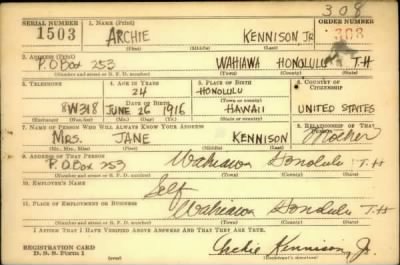 308
SERIAL NUMBER 1. NAME (Print) ORDER NUMBER
1503 ARCHIE KENNISON JR 308
(First) (Middle) (Last)
2. ADDRESS (Print)
P.O BOX 253 WAHIAWA HONOLULU T.H
(Number and street or R. F. D. number) (Town) (County) (State)
3. TELEPHONE 4. AGE IN YEARS 5. PLACE OF BIRTH 6. COUNTRY OF CITIZENSHIP
24 HONOLULU
DATE OF BIRTH (Town or county)
8W318 JUNE 26 1916 HAWAII UNITED STATES
(Exchange) (Number) (Mo.) (Day) (Yr.) (State or country)
7. NAME OF PERSON WHO WILL ALWAYS KNOW YOUR ADDRESS 8. RELATIONSHIP OF THAT PERSON
MRS. JANE KENNISON Mother
(Mr., Mrs., Miss) (First) (Middle) (Last)
9. ADDRESS OF THAT PERSON
P.O Box 253 Wahiawa Honolulu T.H
(Number and street or R. F. D. number) (Town) (County) (State)
10. EMPLOYER'S NAME
Self
11. PLACE OF EMPLOYMENT OR BUSINESS
Wahiawa Honolulu T.H
(Number and street or R. F. D. number) (Town) (County) (State)
I AFFIRM THAT I HAVE VERIFIED ABOVE ANSWERS AND THAT THEY ARE TRUE.
REGISTRATION CARD
D. S. S. Form 1 Archie Kennison, Jr.